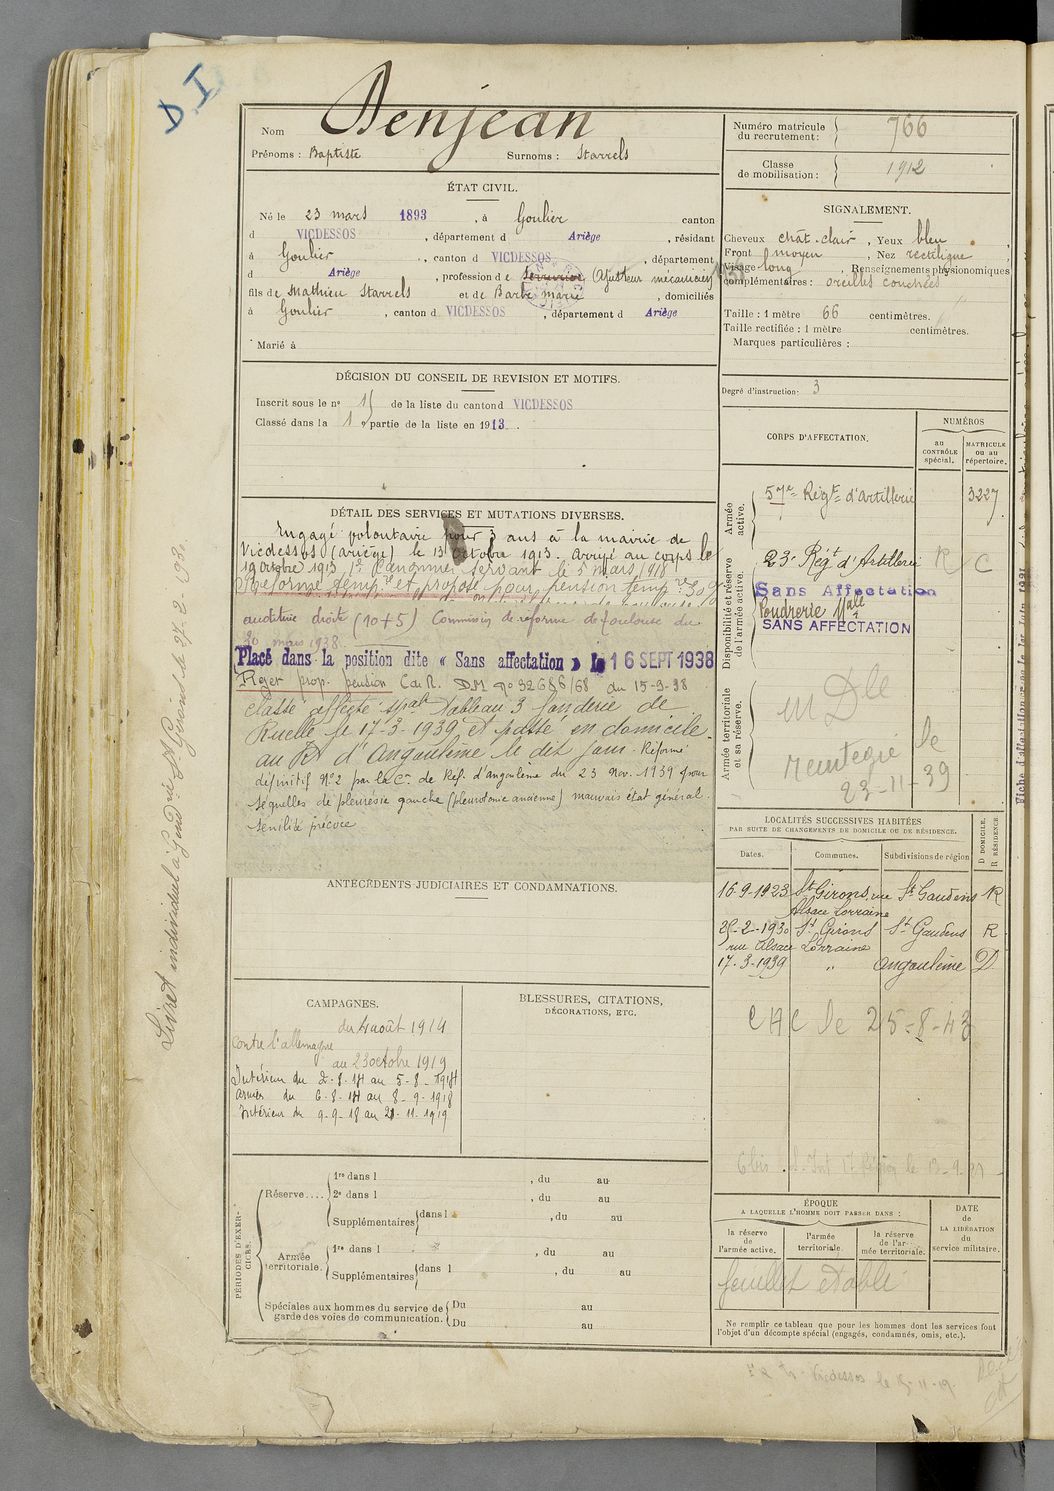 D.I
Nom Denjean
Prénoms : Baptiste Surnoms : Starrels
ÉTAT CIVIL.
Né le 23 mars 1893, à Goulier canton
d VICDESSOS, département d Ariège, résidant
à Goulier, canton d VICDESSOS, département
d Ariège, profession de Serrurier Ajusteur mécanicien
fils de Mathieu Starrels et de Barbe Marie, domiciliés
à Goulier, canton d VICDESSOS, département d Ariège
Marié à
DÉCISION DU CONSEIL DE REVISION ET MOTIFS.
Inscrit sous le no 15 de la liste du canton d VICDESSOS
Classé dans la 1e partie de la liste en 1913.
DÉTAIL DES SERVICES ET MUTATIONS DIVERSES.
Engagé volontaire pour 3 ans à la mairie de
Vicdessos (Ariège) le 13 Octobre 1913. Arrivé au corps le
19 Octobre 1913 1r Canonnier servant le 5 mars 1918
Réformé temp re et proposé pour pension temp re 30 %
auditive droite (10+5) Commission de réforme de Toulouse du
30 mars 1938.
Placé dans la position dite « Sans affectation » le 16 SEPT 1938
Rejet prop. pension C.d.R. DM no 32686/68 du 15-9-38
Classé affecté spal tableau 3 fonderie de
Ruelle le 17-3-1939 et passé en domicile
au Rt d'Angoulême le dit jour. Réformé
définitif No 2 par la Con de Réf. d'Angoulême du 23 Nov. 1939 pour
séquelles de pleurésie gauche (pleurotomie ancienne) mauvais état général.
Sénilité précoce
ANTÉCÉDENTS JUDICIAIRES ET CONDAMNATIONS.
CAMPAGNES.
du 4 août 1914
Contre l'allemagne
au 23 octobre 1919
Intérieur du 2-8-14 au 5-8-1914
Armées du 6-8-14 au 8-9-1918
Intérieur du 9-9-18 au 21-11-1919
BLESSURES, CITATIONS,
DÉCORATIONS, ETC.
PÉRIODES D'EXERCICES.
Réserve.... 1re dans l , du au
2e dans l , du au
Supplémentaires dans l , du au
Armée territoriale. 1re dans l , du au
Supplémentaires dans l , du au
Spéciales aux hommes du service de garde des voies de communication. Du au
Du au
Numéro matricule du recrutement: 766
Classe de mobilisation : 1912
SIGNALEMENT.
Cheveux chât. clair, Yeux bleu
Front moyen, Nez rectiligne
Visage long, Renseignements physionomiques
complémentaires : oreilles couchées
Taille : 1 mètre 66 centimètres.
Taille rectifiée : 1 mètre centimètres.
Marques particulières :
Degré d'instruction: 3
CORPS D'AFFECTATION.
NUMÉROS
au CONTRÔLE spécial.
MATRICULE ou au répertoire.
Armée active.
57e Régt d'artillerie 3227
Disponibilité et réserve de l'armée active.
23e Régt d'Artillerie R C
Sans Affectation
Poudrerie Nale
SANS AFFECTATION
Armée territoriale et sa réserve.
m Dle
réintégré le
23-11-39
LOCALITÉS SUCCESSIVES HABITÉES
PAR SUITE DE CHANGEMENTS DE DOMICILE OU DE RÉSIDENCE.
D DOMICILE.
R RÉSIDENCE
Dates. Communes. Subdivisions de région
16-9-1923 St Girons, rue St Gaudens R
Alsace Lorraine
25-2-1930 St Girons St Gaudens R
rue Alsace Lorraine
17-3-1939 " Angoulême D
C H C le 25-8-43
ÉPOQUE
A LAQUELLE L'HOMME DOIT PASSER DANS :
la réserve de l'armée active.
l'armée territoriale.
la réserve de l'armée territoriale.
DATE de LA LIBÉRATION du service militaire.
feuillet établi
Ne remplir ce tableau que pour les hommes dont les services font
l'objet d'un décompte spécial (engagés, condamnés, omis, etc.).